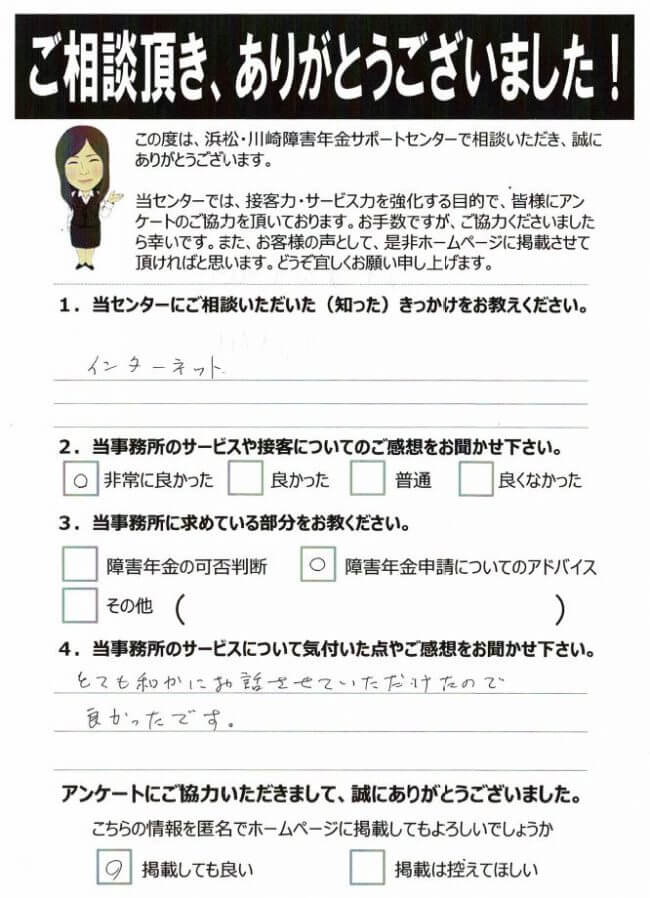 ご相談頂き、ありがとうございました！
この度は、浜松・川崎障害年金サポートセンターで相談いただき、誠に
ありがとうございます。
当センターでは、接客力・サービス力を強化する目的で、皆様にアン
ケートのご協力を頂いております。お手数ですが、ご協力くださいました
ら幸いです。また、お客様の声として、是非ホームページに掲載させて
頂ければと思います。どうぞ宜しくお願い申し上げます。
１．当センターにご相談いただいた（知った）きっかけをお教えください。
インターネット
２．当事務所のサービスや接客についてのご感想をお聞かせ下さい。
○ 非常に良かった 良かった 普通 良くなかった
３．当事務所に求めている部分をお教ください。
障害年金の可否判断 ○ 障害年金申請についてのアドバイス
その他 （ ）
４．当事務所のサービスについて気付いた点やご感想をお聞かせ下さい。
とても和かにお話させていただけたので
良かったです。
アンケートにご協力いただきまして、誠にありがとうございました。
こちらの情報を匿名でホームページに掲載してもよろしいでしょうか
○ 掲載しても良い 掲載は控えてほしい